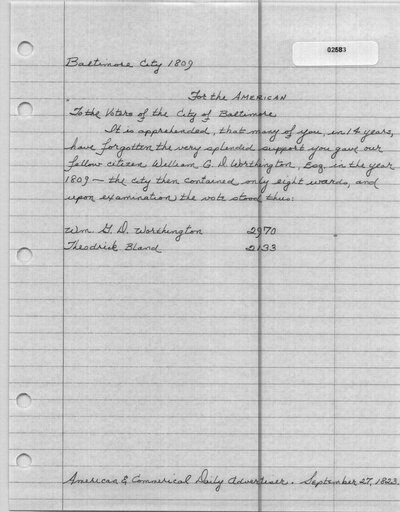 02583
Baltimore City 1809
For the AMERICAN
To the Voters of the City of Baltimore
It is apprehended, that many of you, in 14 years,
have forgotten the very splendid support you gave our
fellow citizen William G. D. Worthington, Esq. in the year
1809 — the city then contained only eight wards, and
upon examination the vote stood thus:
Wm. G. D. Worthington 2970
Theodrick Bland 2133
American & Commerical Daily Advertiser. September 27, 1823.